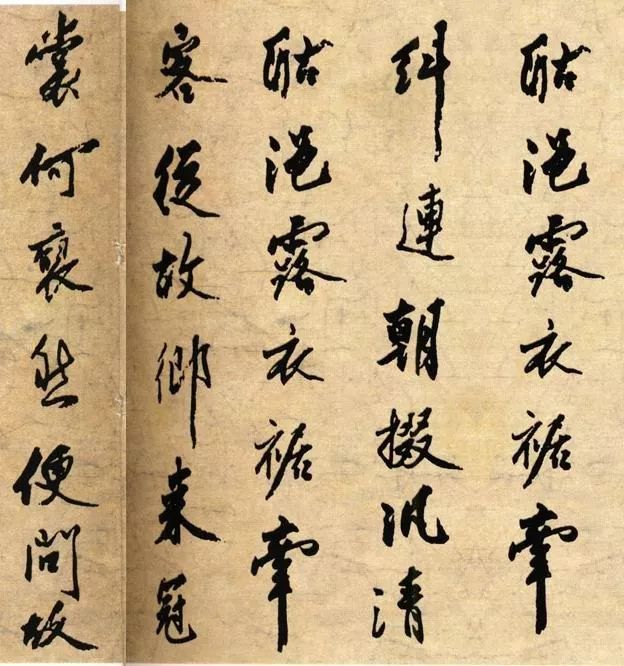 酤浥露衣裾牽
糾連朝掇汎清
酤浥露衣裾牽
客從故鄉來冠
裳何褎然便問故